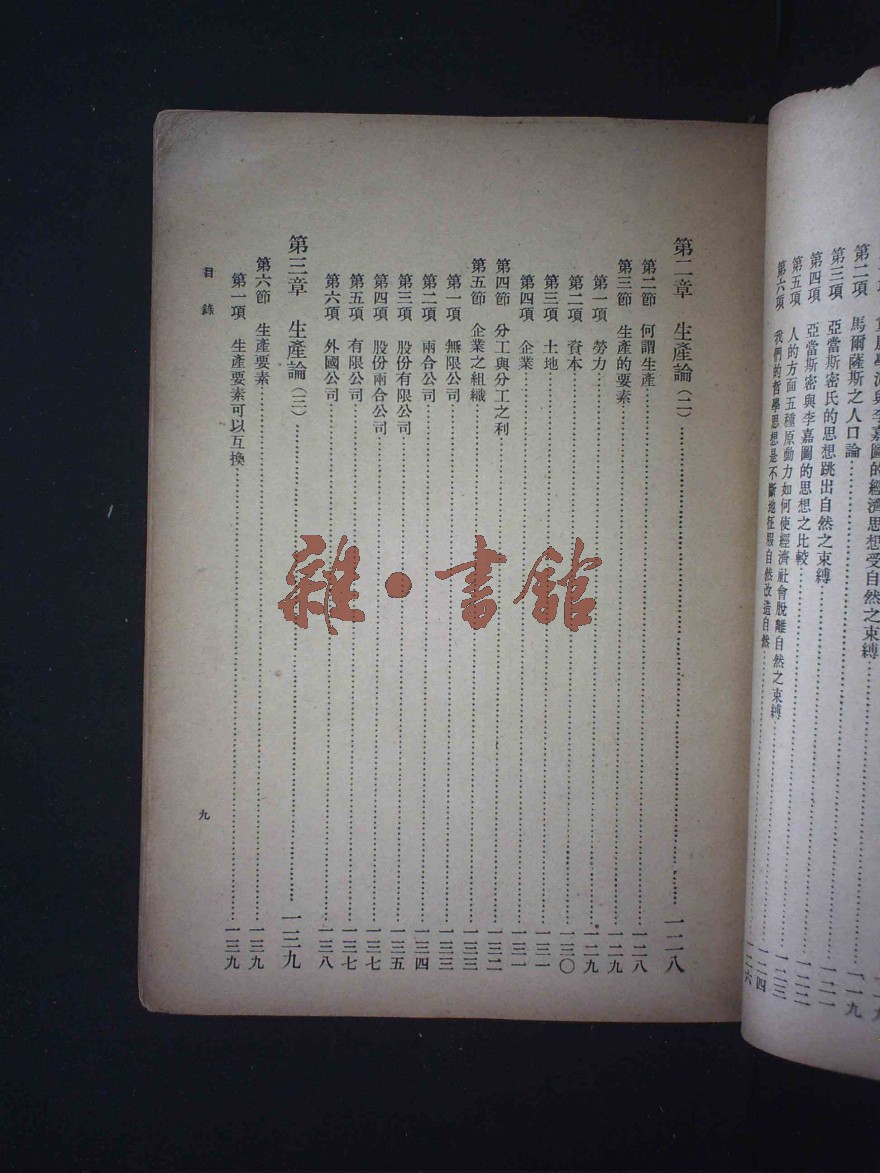 第二項 馬爾薩斯之人口論……一一九
第三項 亞當斯密氏的思想跳出自然之束縛……一二一
第四項 亞當斯密與李嘉圖的思想之比較……一二二
第五項 人的方面五種原動力如何使經濟社會脫離自然之束縛……一二三
第六項 我們的哲學思想是不斷地征服自然改造自然……一二四
一二六
第二章 生產論(二)……一二八
第二節 何謂生產……一二八
第三節 生產的要素……一二九
第一項 勞力……一二九
第二項 資本……一三〇
第三項 土地……一三一
第四項 企業……一三一
第四節 分工與分工之利……一三二
第五節 企業之組織……一三三
第一項 無限公司……一三三
第二項 兩合公司……一三四
第三項 股份有限公司……一三五
第四項 股份兩合公司……一三七
第五項 有限公司……一三七
第六項 外國公司……一三八
第三章 生產論(三)……一三九
第六節 生產要素……一三九
第一項 生產要素可以互換……一三九
目錄
九
雜·書館